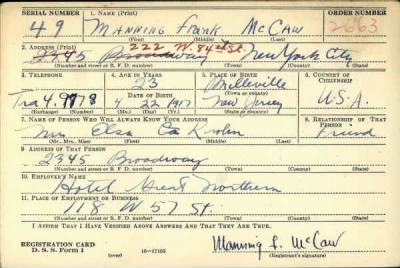 SERIAL NUMBER 1. NAME (Print) ORDER NUMBER
49 Manning Frank McCaw 2663
(First) (Middle) (Last)
2. ADDRESS (Print) 222 W. 84th St.
2345 Broadway New York City
(Number and street or R. F. D. number) (Town) (County) (State)
3. TELEPHONE 4. AGE IN YEARS 5. PLACE OF BIRTH 6. COUNTRY OF CITIZENSHIP
23 Belleville
Tra 4.9978 DATE OF BIRTH (Town or county)
4 22 1917 New Jersey U.S.A.
(Exchange) (Number) (Mo.) (Day) (Yr.) (State or country)
7. NAME OF PERSON WHO WILL ALWAYS KNOW YOUR ADDRESS 8. RELATIONSHIP OF THAT PERSON
Mrs Elsa Krohn Friend
(Mr., Mrs., Miss) (First) (Middle) (Last)
9. ADDRESS OF THAT PERSON
2345 Broadway
(Number and street or R. F. D. number) (Town) (County) (State)
10. EMPLOYER'S NAME
Hotel Great Northern
11. PLACE OF EMPLOYMENT OR BUSINESS
118 W 57 St.
(Number and street or R. F. D. number) (Town) (County) (State)
I AFFIRM THAT I HAVE VERIFIED ABOVE ANSWERS AND THAT THEY ARE TRUE.
REGISTRATION CARD
D. S. S. Form 1 (over) 16—17105 Manning F. McCaw
(Registrant's signature)